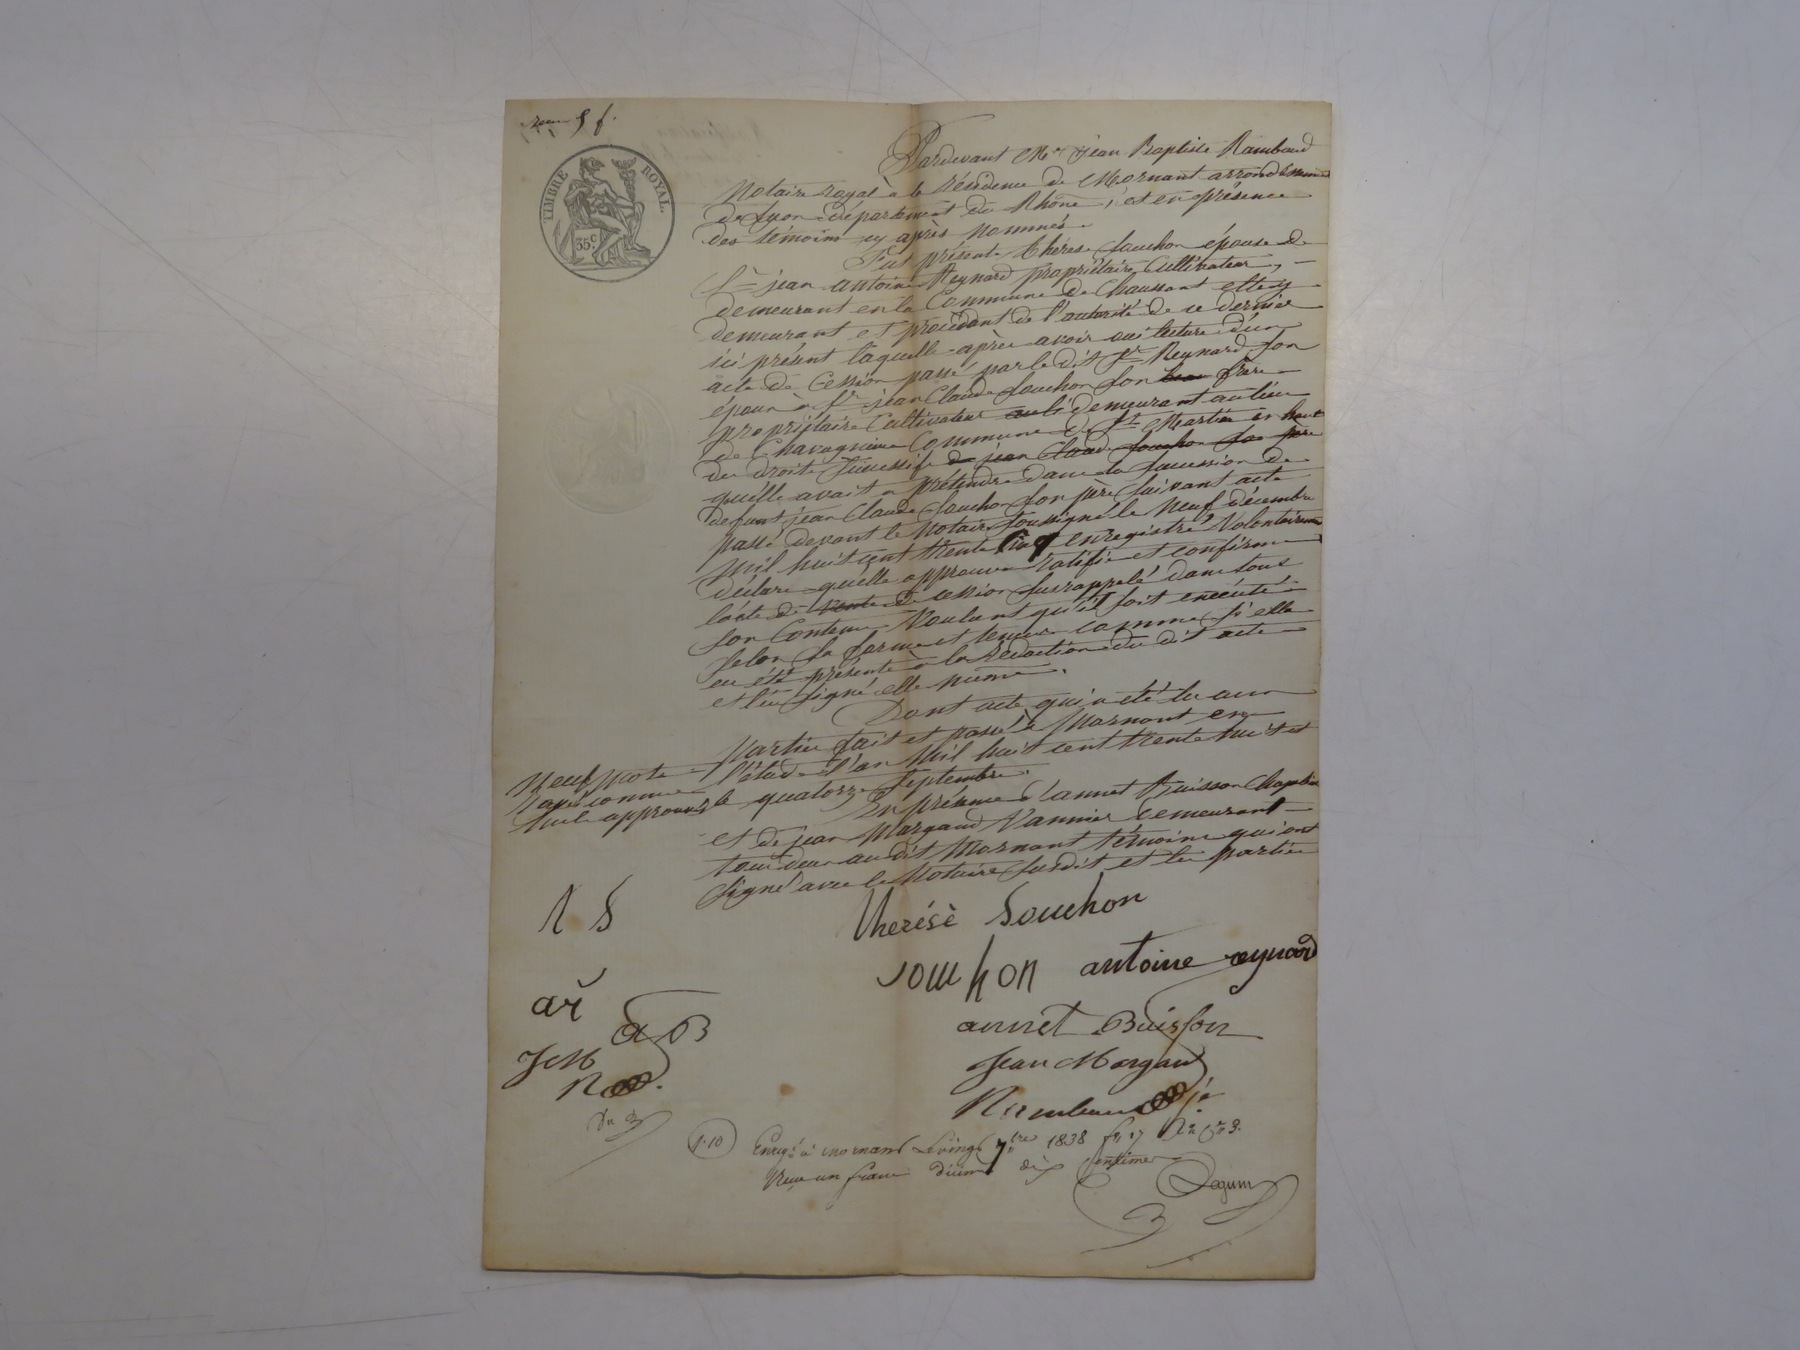 5 f.
TIMBRE ROYAL.
35 c.
Pardevant Me. Jean Baptiste Rambaud
Notaire royal à la résidence de Mornant arrondissement
de Lyon département du Rhône, et en présence
des témoins cy après nommés.
Fut présente thérèse Souchon épouse de
Sr. jean antoine Reynard propriétaire Cultivateur,
demeurant en la Commune de Chaussant elle y
demeurant et procédant de l'autorité de ce dernier
ici présent laquelle après avoir oui lecture d'un
acte de Cession passé par le dit Sr. Reynard son
époux à Sr. jean Claude Souchon son beau frère
propriétaire Cultivateur demeurant au lieu
de Chavagnieu Commune de St. Martin en haut
du droits Successifs de jean Claude Souchon son père
qu'elle avait a prétendre dans la succession de
défunt jean Claude Souchon son père suivant acte
passé devant le Notaire soussigné le Neuf décembre
Mil huit cent trente cinq enregistré Volontairement
déclare qu'elle approuve ratifie et confirme
l'acte de vente de cession susrappelé dans tous
son Contenu Voulant qu'il soit exécuté
selon sa forme et teneur comme si elle
eu été présente à la rédaction du dit acte
et l'eu signé elle même.
Dont acte qui a été lu aux
Parties fait et passé à Mornant en
l'étude l'an Mil huit cent trente huit et
le quatorze Septembre.
Neuf mots
rayés comme
nuls approuvés
En présence d'annet Buisson Chapelier
et de jean Margaud Vannier demeurant
tous deux au dit Mornant témoins qui ont
signé avec le Notaire susdit et les parties
t S
therésè Souchon
souchon antoine reynard
ar
a B
annet Buisson
J M
jean Margaud
R
Rambaud
1.10
Enregé à mornant le vingt 7bre 1838 fo 27
Reçu un franc dixième dix centimes